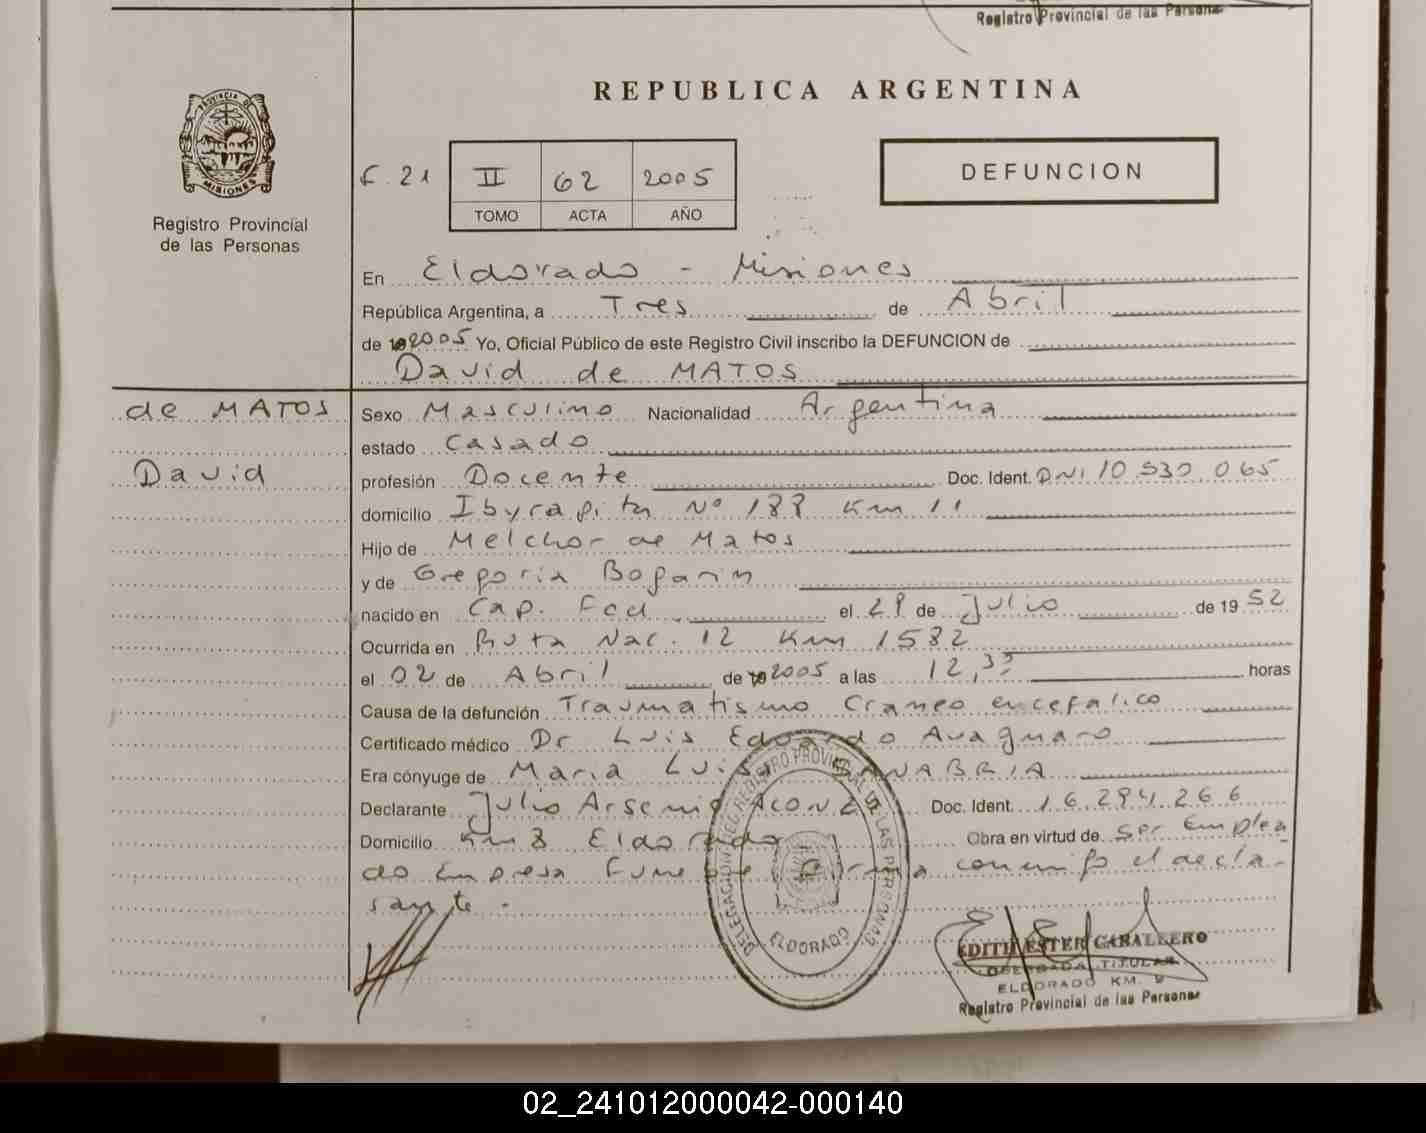 Registro Provincial de las Personas
REPUBLICA ARGENTINA
PROVINCIA DE
MISIONES
Registro Provincial
de las Personas
F. 21
II 62 2005
TOMO ACTA AÑO
DEFUNCION
En Eldorado - Misiones
República Argentina, a Tres de Abril
de 2005 Yo, Oficial Público de este Registro Civil inscribo la DEFUNCION de
David de MATOS
de MATOS
David
Sexo Masculino Nacionalidad Argentina
estado Casado
profesión Docente Doc. Ident. DNI 10.530.065
domicilio Ibyrapita Nº 188 Km 11
Hijo de Melchor de Matos
y de Gregoria Bogarin
nacido en Cap. Fed. el 28 de Julio de 1952
Ocurrida en Ruta Nac. 12 Km 1582
el 02 de Abril de 2005 a las 12,33 horas
Causa de la defunción Traumatismo Craneo encefalico
Certificado médico Dr Luis Eduardo Avagnaro
Era cónyuge de Maria Luisa SANABRIA
Declarante Julio Arsenio Doc. Ident. 16.284.266
Domicilio Km 8 Eldorado Obra en virtud de ser Emplea
do Empresa Funebre firma conmigo el decla-
rante.-
DELEGACION DEL REGISTRO PROVINCIAL DE LAS PERSONAS
ELDORADO
EDITH ESTER CABALLERO
DELEGADA TITULAR
ELDORADO KM. 9
Registro Provincial de las Personas
02_241012000042-000140